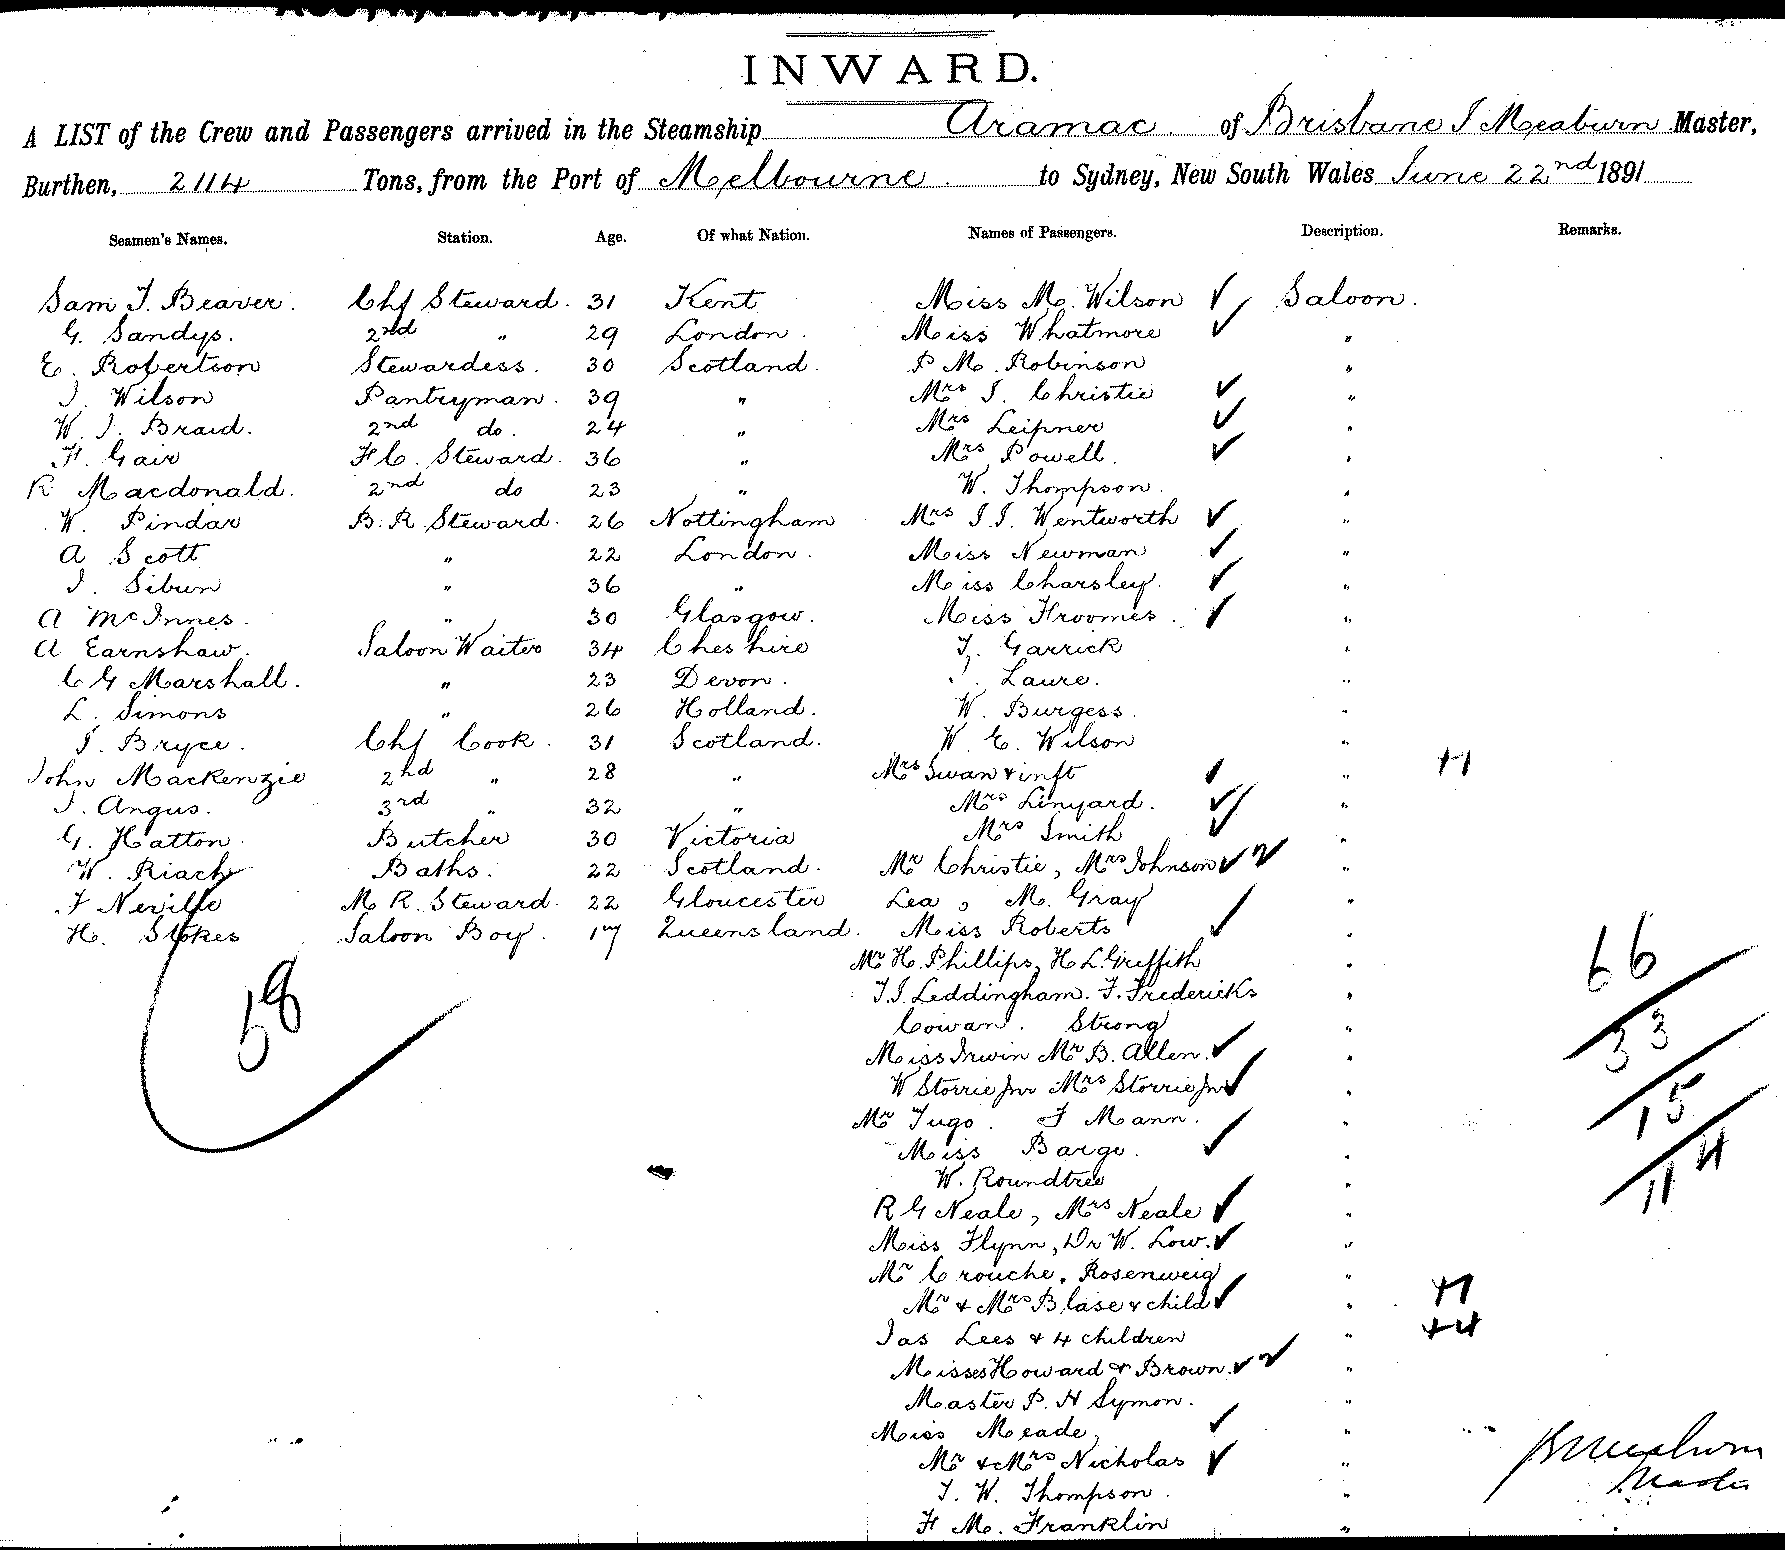 INWARD.
A LIST of the Crew and Passengers arrived in the Steamship Aramac of Brisbane J Meaburn Master,
Burthen, 2114 Tons, from the Port of Melbourne to Sydney, New South Wales June 22nd 1891
Seamen's Names. Station. Age. Of what Nation. Names of Passengers. Description. Remarks.
Sam T. Beaver. Chf Steward. 31 Kent Miss M. Wilson ✓ Saloon.
G. Sandys. 2nd " 29 London. Miss Whatmore ✓ "
E. Robertson Stewardess. 30 Scotland. P M. Robinson "
J. Wilson Pantryman. 39 " Mrs J. Christie ✓ "
W. J. Braid. 2nd do. 24 " Mrs Leipner ✓ "
F. Gair F C. Steward. 36 " Mrs Powell. ✓ "
R Macdonald. 2nd do 23 " W. Thompson. "
W. Pindar B. R. Steward. 26 Nottingham Mrs J. J. Wentworth ✓ "
A Scott " 22 London. Miss Newman ✓ "
J. Sibun " 36 " Miss Charsley. ✓ "
A McInnes. " 30 Glasgow. Miss Froomes. ✓ "
A Earnshaw. Saloon Waiter 34 Cheshire T. Garrick "
C G Marshall. " 23 Devon. J. Laure. "
L. Simons " 26 Holland. W. Burgess. "
J. Bryce. Chf Cook. 31 Scotland. W. E. Wilson "
John Mackenzie 2nd " 28 " Mrs Swan & inft ✓ " +1
J. Angus. 3rd " 32 " Mrs Linyard. ✓ "
G. Hatton. Butcher 30 Victoria Mrs Smith ✓ "
W. Riach Baths. 22 Scotland. Mr Christie, Mrs Johnson ✓ "
F Neville M R. Steward. 22 Gloucester Lea, M. Gray "
H. Stokes Saloon Boy. 17 Queensland. Miss Roberts ✓ "
Mr H. Phillips, H L. Griffith "
T. J. Leddingham. F. Fredericks "
Cowan. Strong "
Miss Irwin Mr B. Allen. ✓ "
W Storrie Jnr Mrs Storrie Jnr ✓ "
Mr Tugo. F Mann. "
Miss Barge. ✓ "
W. Roundtree "
R G Neale, Mrs Neale ✓ "
Miss Flynn, Dr W. Low. ✓ "
Mr Crouche, Rosenweig "
Mr & Mrs Blase & child ✓ " +1
Jas Lees & 4 children " +4
Misses Howard & Brown. ✓ "
Master P. H Symon. "
Miss Meade, ✓ "
Mr & Mrs Nicholas ✓ "
J. W. Thompson. "
F M. Franklin "
58
66
33
15
114
Meaburn
Master